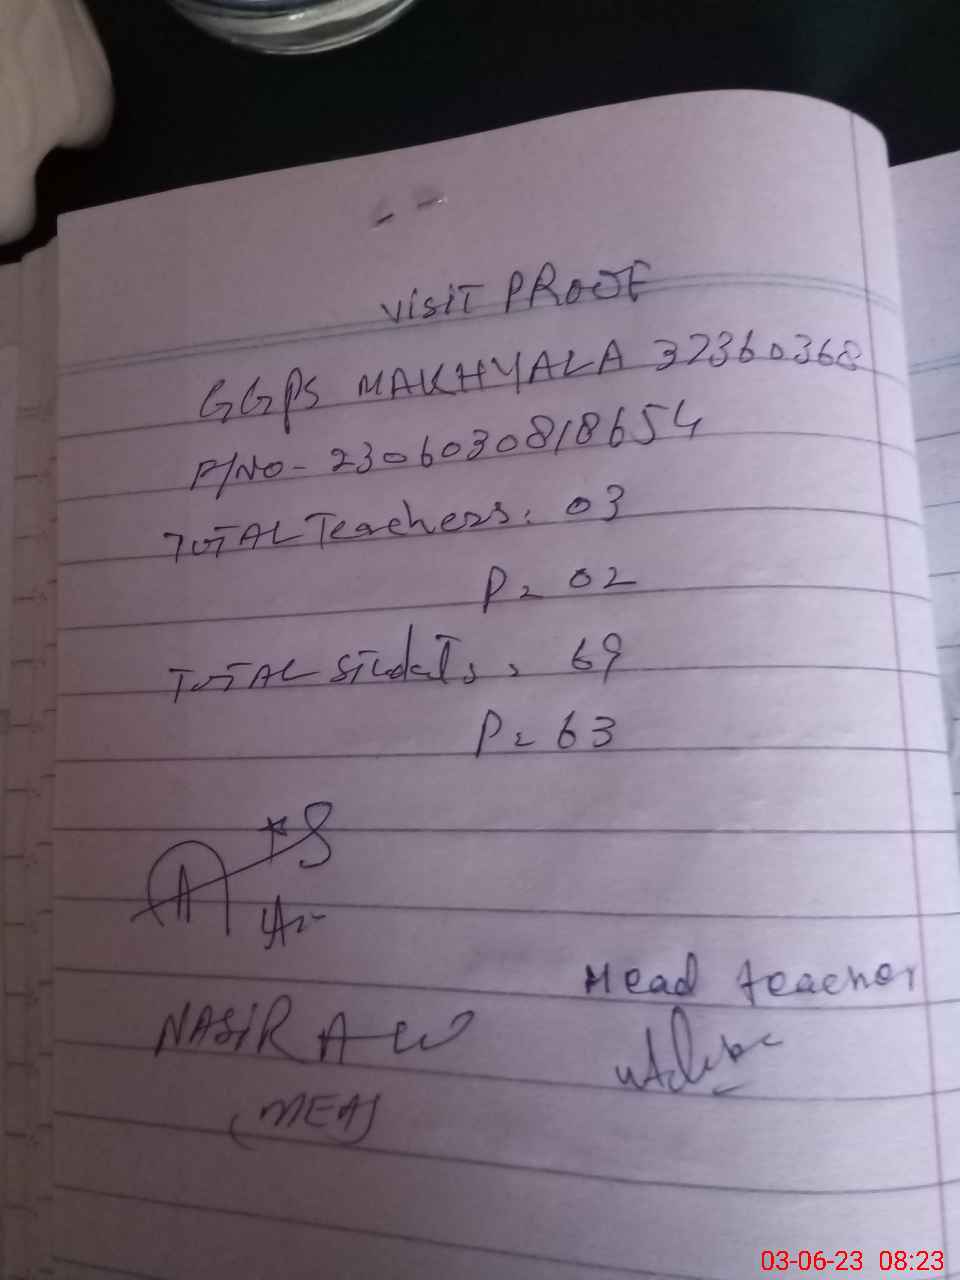 visit PROOF
GGPS MAKHYALA 32360368
P/NO- 2306030818654
TOTAL Teachers: 03
P= 02
TOTAL Studets = 69
P= 63
Head teacher
NASIR A
(MEA)
03-06-23 08:23